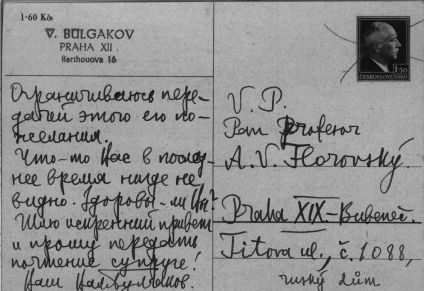 1·60 Kčs
V. BULGAKOV
PRAHA XII
Barthouova 16
Ограничиваюсь пере-
дачей этого его по-
желания.
Что-то Вас в послед-
нее время нигде не
видно. Здоровы-ли Вы?
Шлю искренний привет
и прошу передать
почтение супруге!
Ваш Вал. Булгаков.
1·50
ČESKOSLOVENSKO
V. P.
Pan Profesor
A. V. Florovský.
Praha XIX-Bubeneč.
Titova ul., č. 1088,
ruský dům